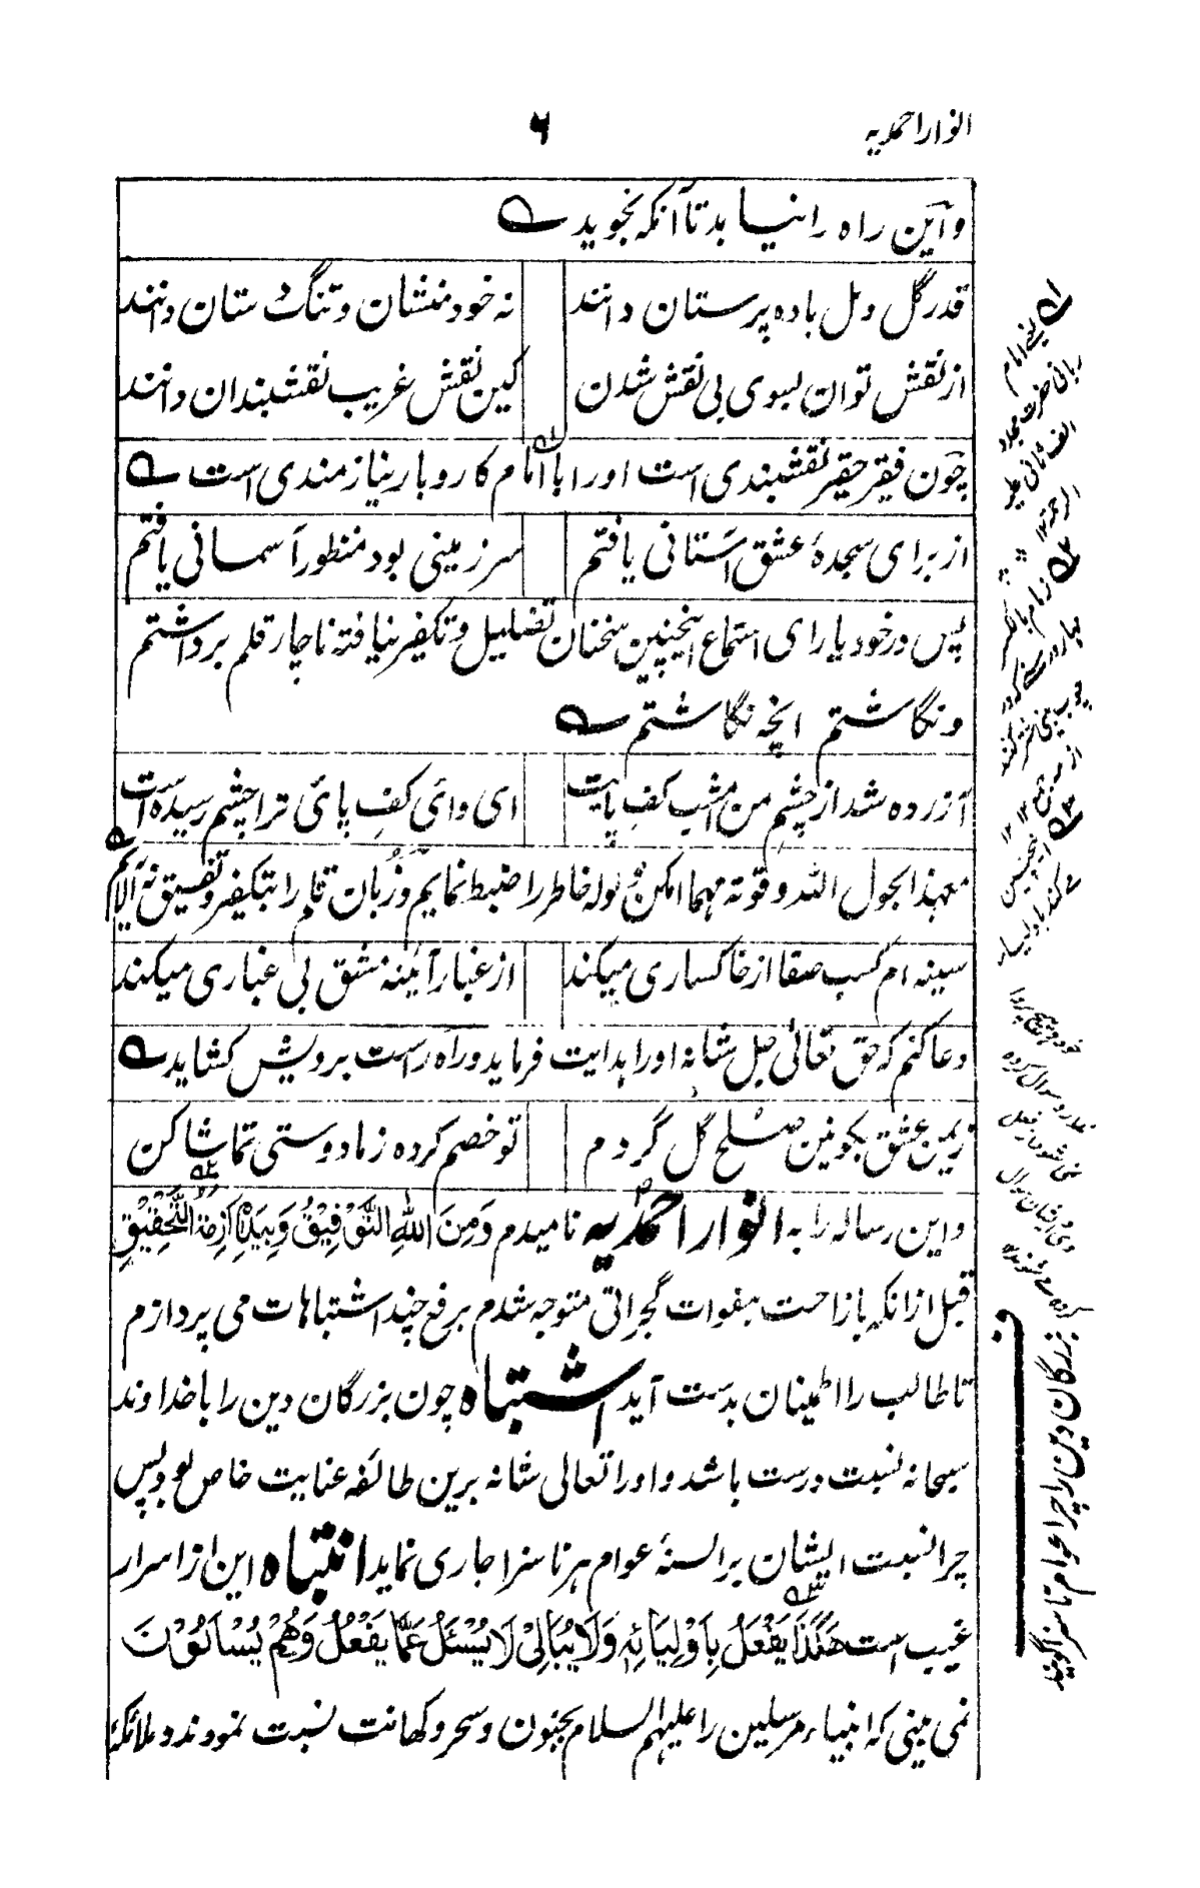 انوار احمدیه
۶
و این راه را نیابد تا آنکه نجوید
قدر گل و مل باده پرستان دانند
نه خود منشان و تنگ دستان دانند
از نقش توان بسوی بی نقش شدن
کین نقش غریب نقشبندان دانند
چون فقیر حقیر نقشبندی است او را با امام کاروبار نیازمندی است
از برای سجدۀ عشق آستانی یافتم
سرزمینی بود منظور آسمانی یافتم
پس در خود یارای استماع اینچنین سخنان تضلیل و تکفیر نیافته ناچار قلم برداشتم
و نگاشتم انچه نگاشتم
آزرده شد از چشم من امشب کف پایت
ای وائی کفِ پائی ترا چشم رسیده است
معهذا بحول الله و قوته مهما امکن لوله خاطر را ضبط نمایم و زبان قلم را بتکفیر و تفسیق نه آلایم
سینه ام کسب صفا از خاکساری میکند
از غبار آئینه مشق بی غباری میکند
دعا کنم که حق تعالی جل شانه او را هدایت فرماید و راه راست برویش کشاید
زیمن عشق بکونین صلح کل کردم
تو خصم کرده ز ما دوستی تماشا کن
و این رساله را به انوار احمدیه نامیدم وَمِنَ اللهِ التَّوْفِيْقُ وَبِيَدِهٖ اَزِمَّةُ التَّحْقِيْقِ
قبل ازانکه بازاحت هفوات گجراتی متوجه شدم برفع چند اشتباهات می پردازم
تا طالب را اطمینان بدست آید اشتباه چون بزرگان دین را با خداوند
سبحانه نسبت درست باشد و او را تعالی شانه برین طائفه عنایت خاص بود پس
چرا نسبت ایشان بر السنۀ عوام هر ناسزا جاری نماید انتباه این از اسرار
غیب است هٰكَذَا يَفْعَلُ بِاَوْلِيَائِهٖ وَلَا يُبَالِیْ لَا يُسْئَلُ عَمَّا يَفْعَلُ وَهُمْ يُسْاَلُوْنَ
نمی بینی که انبیاء مرسلین را علیهم السلام بجنون و سحر و کهانت نسبت نمودند و ملائکه
یعنی امام
ربانی حضرت مجدد
الف ثانی علیه
الرحمة ۱۲
بزرگان دین را چرا عوام ناسزا گویند